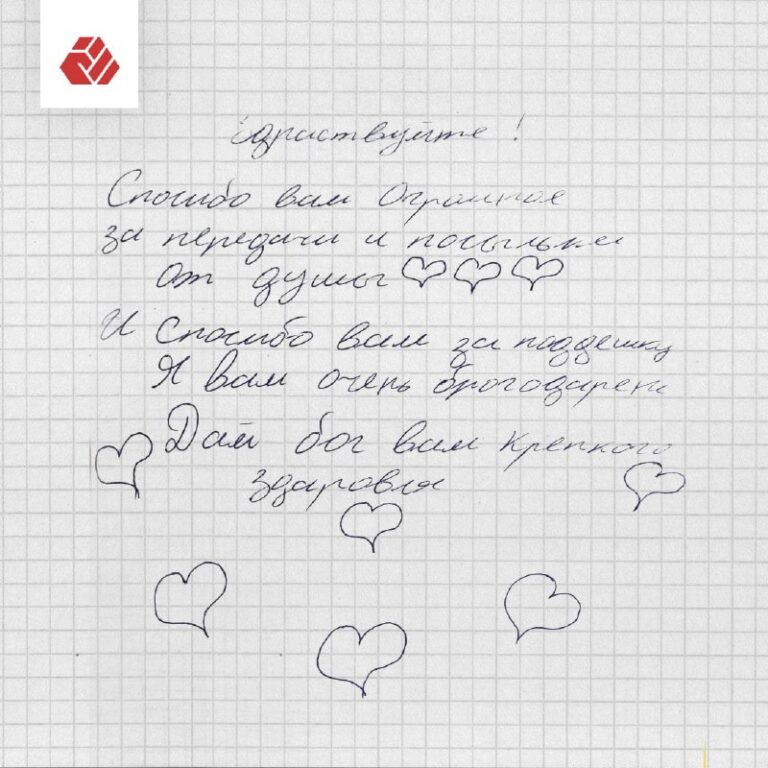 Здраствуйте !
Спосибо вам Огромное
за передачи и посылки
от душы
И Спосибо вам за поддешку
Я вам очень брогодарен
Дай бог вам крепкого
здаровля